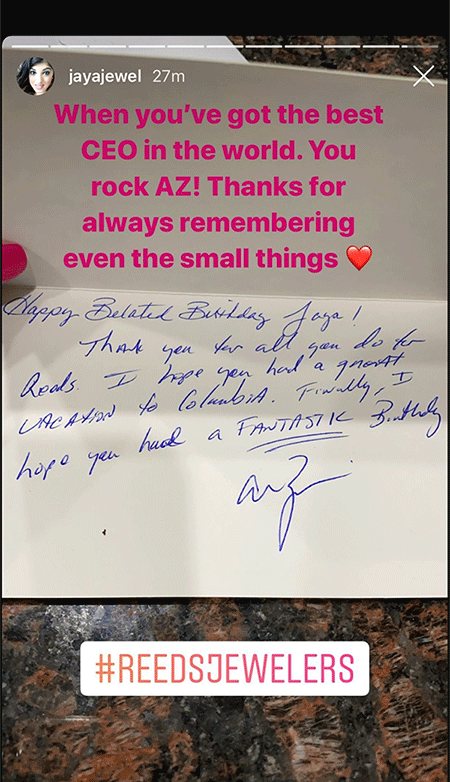 jayajewel 27m
When you’ve got the best
CEO in the world. You
rock AZ! Thanks for
always remembering
even the small things ❤️
Happy Belated Birthday Jaya!
Thank you for all you do for
Reeds. I hope you had a great
VACATION to Columbia. Finally, I
hope you had a FANTASTIC Birthday
#REEDSJEWELERS